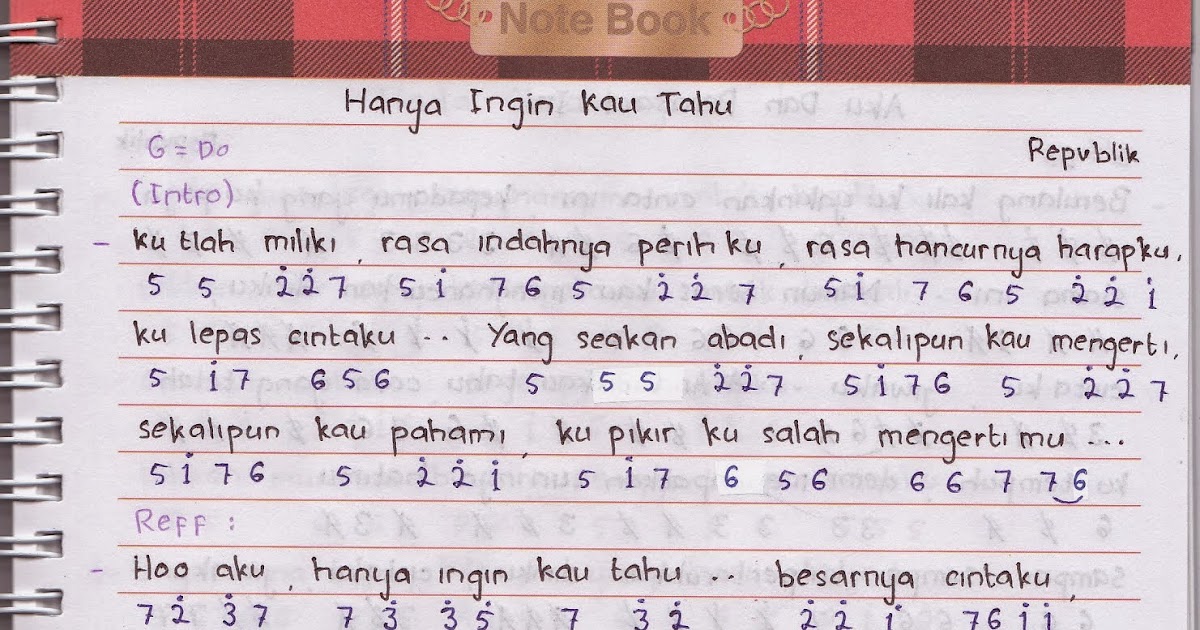 Note Book
Hanya Ingin Kau Tahu
G = Do
Republik
(Intro)
- ku tlah miliki, rasa indahnya perih ku, rasa hancurnya harapku,
5 5 2̇ 2̇ 7 5 1̇ 7 6 5 2̇ 2̇ 7 5 1̇ 7 6 5 2̇ 2̇ 1̇
ku lepas cintaku ... Yang seakan abadi, sekalipun kau mengerti,
5 1̇ 7 6 5 6 5 5 5 2̇ 2̇ 7 5 1̇ 7 6 5 2̇ 2̇ 7
sekalipun kau pahami, ku pikir ku salah mengerti mu ...
5 1̇ 7 6 5 2̇ 2̇ 1̇ 5 1̇ 7 6 5 6 6 6 7 7 6
Reff :
- Hoo aku, hanya ingin kau tahu ... besarnya cintaku,
7 2̇ 3̇ 7 7 3̇ 3̇ 5̇ 7 3̇ 2̇ 2̇ 2̇ 1̇ 7 6 1̇ 1̇